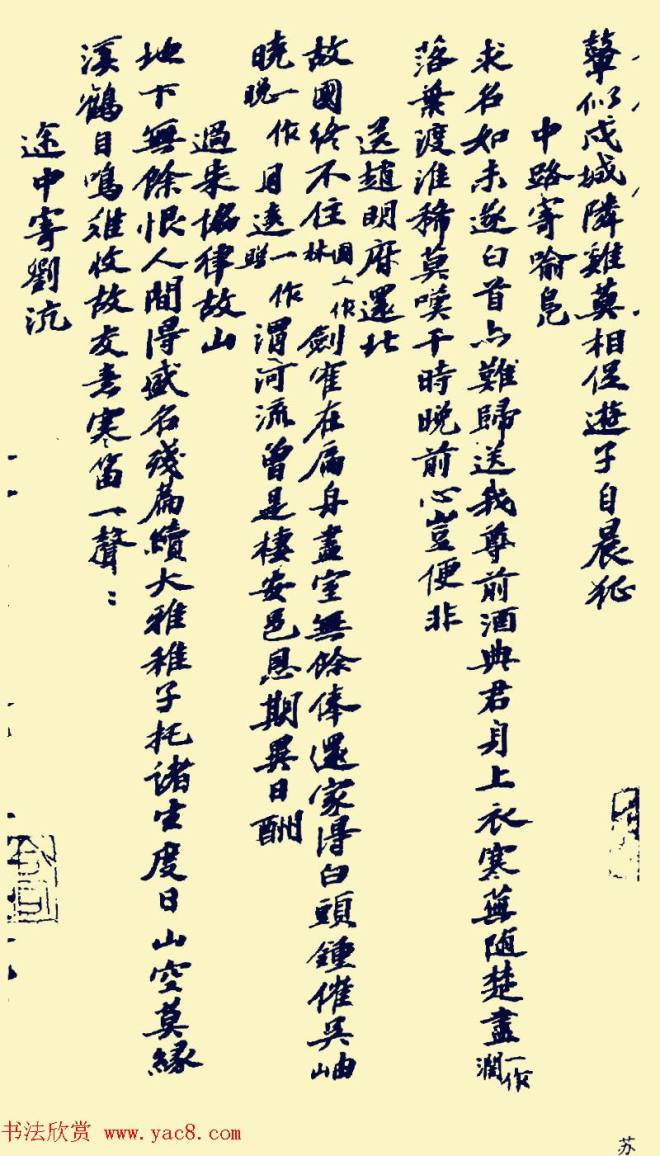 似戍城隣雞莫相促遊子自晨征
中路寄喻鳧
求名如未遂白首亦難歸送我尊前酒典君身上衣寒蕪随楚盡一作潤
落葉渡淮稀莫嘆干時晚前心豈便非
送趙明府還北
故國終不住國一作林劍在扁舟盡室無餘俸還家得白頭鍾催吳岫
曉一作晚月遠一作照渭河流曾是棲安邑恩期異日酬
過朱協律故山
地下無餘恨人間得盛名殘篇續大雅稚子托諸生度日山空莫緣
溪鶴自鳴難收故友意寒笛一聲：
途中寄劉沆
书法欣赏 www.yac8.com
苏